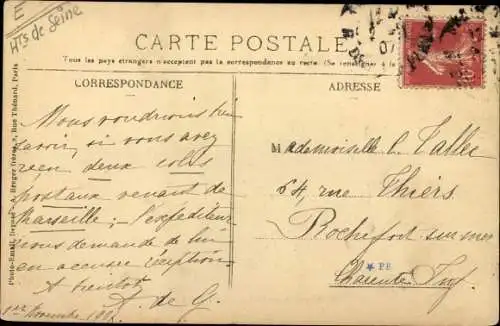 E
Hts de Seine
CARTE POSTALE
Tous les pays étrangers n'acceptent pas la correspondance au recto. (Se renseigner à la
CORRESPONDANCE
ADRESSE
Nous voudrions bien
savoir si vous avez
reçu deux colis
postaux venant de
Marseille; l'expéditeur
nous demande de lui
en accuser réception
A bientôt
A. de G.
1er Novembre
Mademoiselle L. Vallée
64, rue Thiers
Rochefort sur mer
Charente Inf.
PP
Photo-Email. Déposé - A. Breger frères, 9, Rue Thénard, Paris